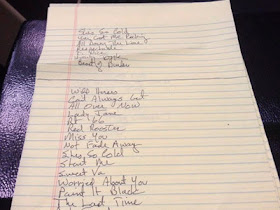 Shes So Cold
You Got Me Rocking
All Down The Line
Respectable
Beast of Burden
Wild Horses
Cant Always Get
All Over Now
Lady Jane
Rt 66
Red Rooster
Miss You
Not Fade Away
Shes So Cold
Start Me
Sweet Va
Worried About You
Paint It Black
The Last Time